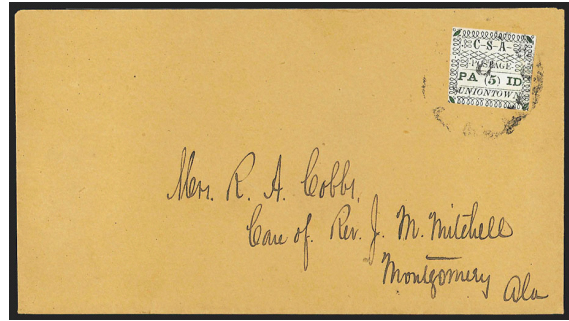 C-S-A-
POSTAGE
PA (5) ID
UNIONTOWN
Mrs. R. A. Cobbs,
Care of. Rev. J. M. Mitchell
Montgomery
Ala